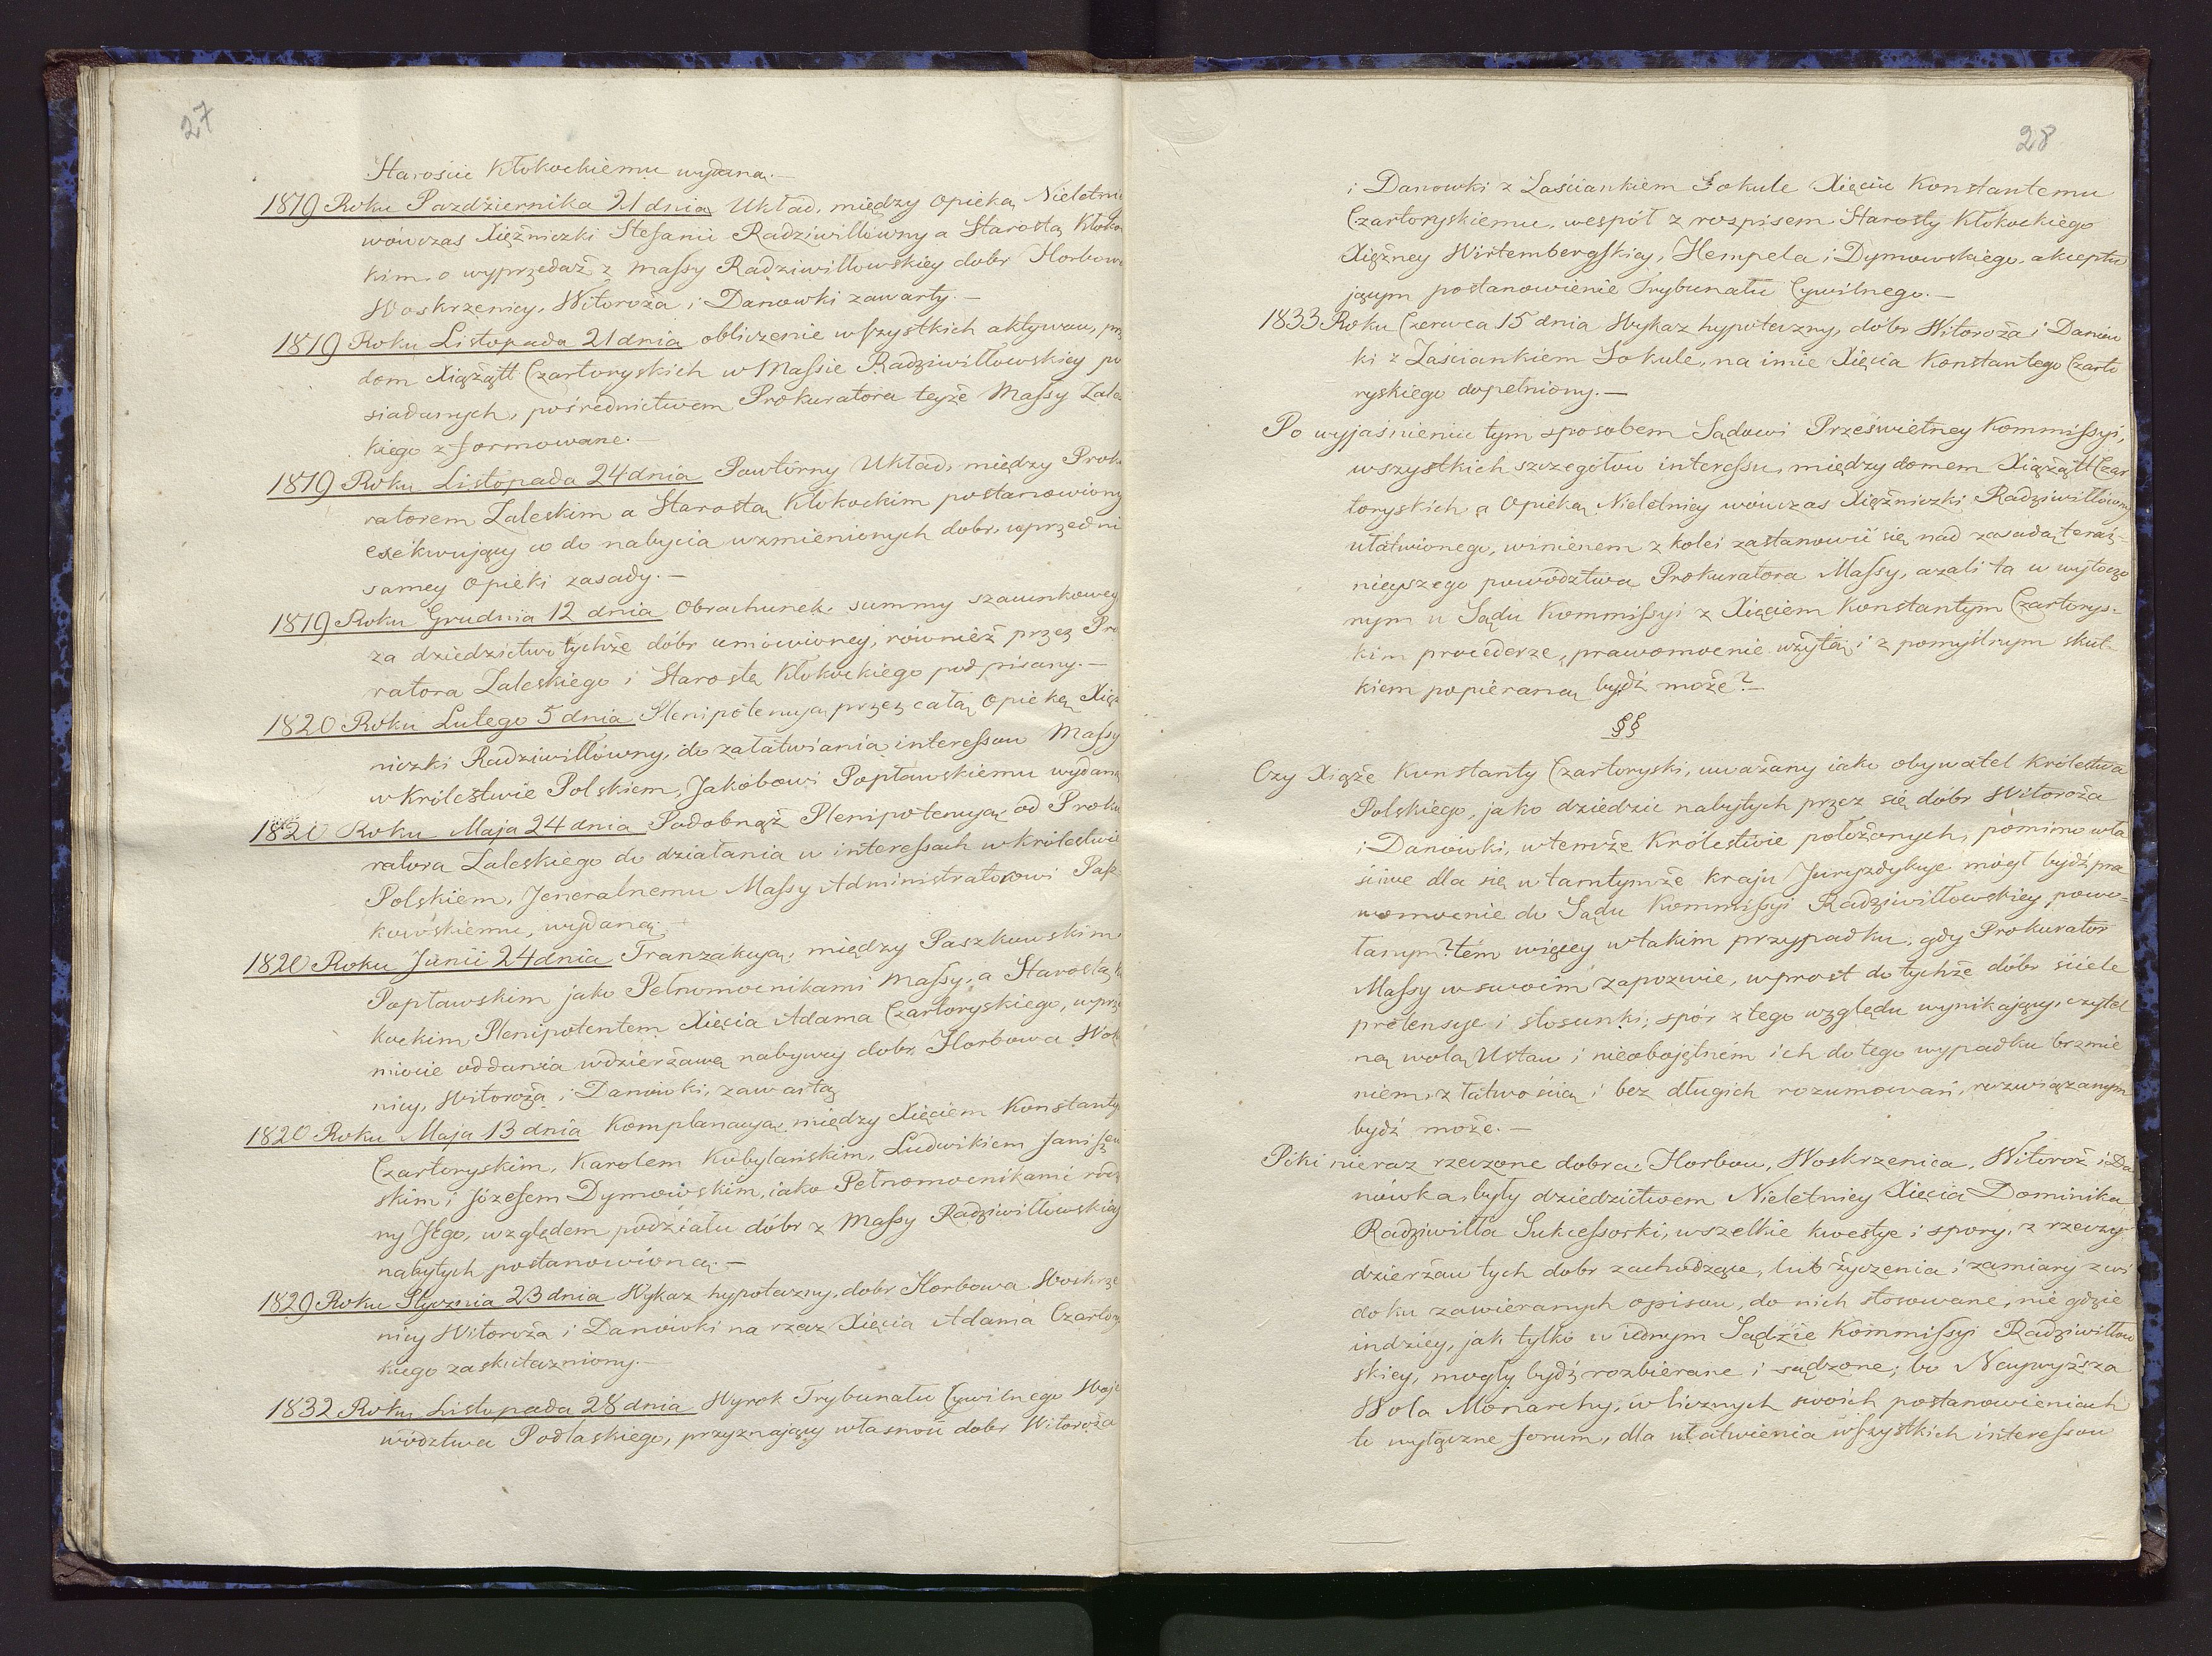 27
Starosćie Kłokockiemu wydaną.—
1819 Roku Pazdźiernika 21 dnia Układ, między Opieką Nieletnie
wówczas Xiężniczki Stefanii Radziwiłłówny a Starostą Kłokoc
kim, o wyprzedaż z massy Radziwiłłowskiey dobr Horbowa
Woskrzenicy, Witoroża i Danowki zawarty.—
1819 Roku Listopada 21 dnia obliczenie wszystkich aktywow, prz
dom Xiążątt Czartoryskich w Massie Radziwiłłowskiey po
siadanych, pośrednictwem Prokuratora teyże Massy Zale
kiego z formowane.—
1819 Roku Listopada 24 dnia Powtórny Układ, między Proku
ratorem Zaleskim a Starostą Kłokockim postanowiony
exekwujący co do nabycia wzmienionych dobr, uprzedni
samey Opieki zasady.—
1819 Roku Grudnia 12 dnia Obrachunek, summy szacunkowey
za dziedzictwo tychże dóbr umówioney, również przez Pro
ratora Zaleskiego i Starostę Kłokockiego podpisany.—
1820 Roku Lutego 5 dnia Plenipotencya, przez całą Opiekę Xięż
niczki Radziwiłłówny, do załatwiania interessow Massy
w Królestwie Polskiem, Jakóbowi Popławskiemu wydana
1820 Roku Maja 24 dnia Podobnąż Plenipotencyą od Proku
ratora Zaleskiego do działania w interessach w Królestwie
Polskiem, Jeneralnemu Massy Administratorowi Pasz
kowskiemu, wydaną.—
1820 Roku Junii 24 dnia Tranzakcyą, między Paszkowskim
Popławskim jako Pełnomocnikami Massy, a Starostą K
kockim Plenipotentem Xięcia Adama Czartoryskiego, w prze
miocie oddania w dzierżawę nabywcy dobr Horbowa Wos
nicy, Witoroża i Danówki, zawartą
1820 Roku Maja 13 dnia Komplanacyą, między Xięciem Konstanty
Czartoryskim, Karolem Kobylańskim, Ludwikiem Janisze
skim i Józefem Dymowskim, iako Pełnomocnikami rodz
ny Jego, względem podziału dóbr z Massy Radziwiłłowskiey
nabytych postanowioną.—
1829 Roku Stycznia 23 dnia Wykaz hypoteczny, dobr Horbowa Woskrze
nicy Witoroża i Danówki na rzecz Xięcia Adama Czartory
kiego zaskuteczniony.—
1832 Roku Listopada 28 dnia Wyrok Trybunału Cywilnego Woje
wództwa Podlaskiego, przyznający własność dobr Witoroża
28
i Danowki z Zaściankiem Sokule Xięciu Konstantemu
Czartoryskiemu, wespół z rozpisem Starosty Kłokockiego
Xiężney Wirtembergskiey, Hempela i Dymowskiego, akceptu
jącym postanowienie Trybunału Cywilnego.—
1833 Roku Czerwca 15 dnia Wykaz hypoteczny, dóbr Witoroża i Danów
ki z Zaściankiem Sokule, na imie Xięcia Konstantego Czarto
ryskiego dopełniony.—
Po wyjaśnieniu tym sposobem Sądowi Prześwietney Kommissyi,
wszystkich szczegółow interessu, między domem Xiążątt Czar
toryskich, a Opieką Nieletniey wówczas Xiężniczki Radziwiłłówny
ułatwionego, winienem z kolei zastanowić się nad zasadą teraź-
nieyszego powództwa Prokuratora Massy, azali ta w wytoczo
nym u Sądu Kommissyi z Xięciem Konstantym Czartorys-
kim procederze, prawomocnie użytą i z pomyślnym skut-
kiem popieraną bydź może?—
§§
Czy Xiąże Konstanty Czartoryski, uważany iako obywatel Królestwa
Polskiego, jako dziedzic nabytych przez się dóbr Witoroża
i Danówki, w temże Królestwie położonych, pomimo wła
ściwe dla się w tamtymże kraju Juryzdykcye mógł bydź pra
womocnie do Sądu Kommissyi Radziwiłłowskiey powo-
łanym? tém więcey w takim przypadku, gdy Prokurator
Massy w swoim zapozwie, wprost do tychże dóbr ściele
pretensye i stosunki; spór z tego względu wynikający, czytel
ną wolą Ustaw i nieobojętném ich do tego wypadku brzmie
niem, z łatwością i bez długich rozumowań, rozwiązanym
bydź może.—
Póki nieraz rzeczone dobra: Horbow, Woskrzenica, Witoroż i Da
nówka, były dziedzictwem Nieletniey Xięcia Dominika
Radziwiłła Sukcessorki, wszelkie kwestye i spory, z rzeczy
dzierżaw tych dobr zachodzące, lub życzenia i zamiary z wi
doku zawieranych opisow, do nich stosowane, nie gdzie
indziey, jak tylko w iednym Sądzie Kommissyi Radziwiłłow
skiey, mogły bydź rozbierane i sądzone; bo Naywyższa
Wola Monarchy, w licznych swoich postanowieniach
to wyłączne forum, dla ułatwienia wszystkich interessow